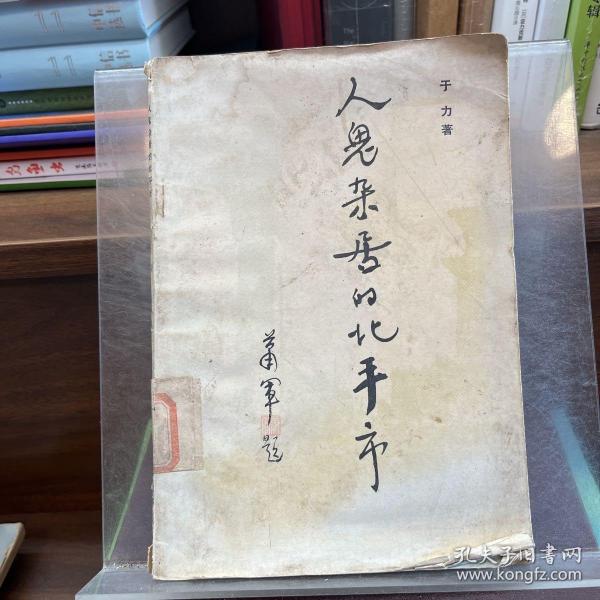 于力著
人鬼杂居的北平市
萧军题
孔夫子旧书网
www.kongfz.com